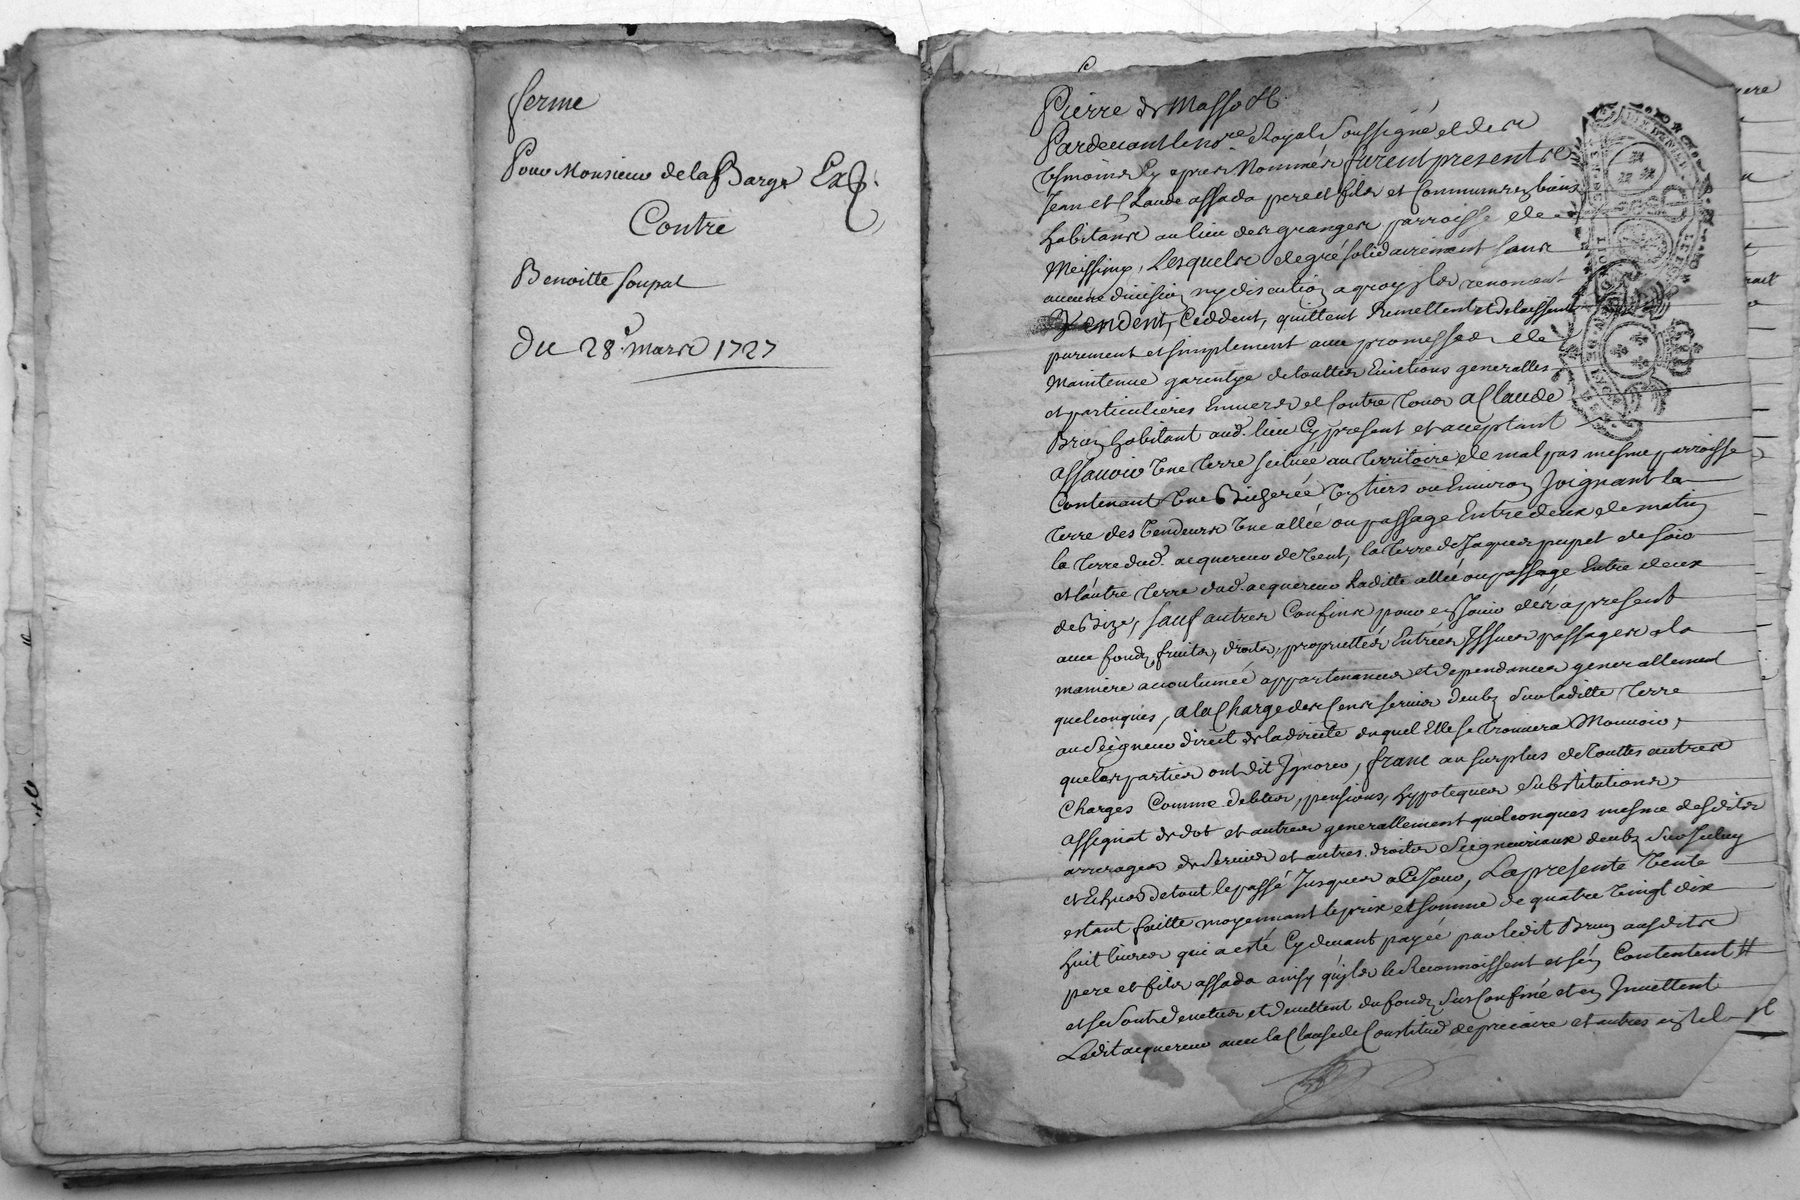 ferme
Pour Monsieur de la Barge
Contre
Benoitte Soupat
Du 28.e Mars 1727
Pierre de Masso &c.
Pardevant le no.re Royal Soussigné et des
tesmoins Cy apres Nommés furent presents
Jean et Claude assada pere et fils et Communs en biens
habitans au lieu des granges parroisse de
Meissimy, Lesquels de gré solidairement sans
aucune division ny discution a quoy ils renoncent
Vendent, Ceddent, quittent Remettent et delaissent
purement et simplement avec promesses de
Maintenue garentye de touttes Evictions generalles
et particulieres Envers et Contre tous a Claude
Brun habitant aud. lieu Cy present et acceptant
assavoir Une terre scituée au territoire de malpas mesme parroisse
Contenant Une Bicherée Un tiers ou Environ Joignant la
terre des Vendeurs Une allée ou passage Entredeux de matin
la terre dud. acquereur de Vent, la terre de Jaques pupet de soir
et l'autre terre dud. acquereur Laditte allée ou passage Entre deux
de Bize, sauf autres Confins pour en Jouir dés a present
avec fonds, fruits, droits, proprietés Entrées Issues passages a la
maniere accoutumée appartenances et dependances generallement
quelconques, a la Charge des Cens servis deubs sur laditte terre
au Seigneur direct de la directe duquel Elle se trouvera Mouvoir,
que les parties ont dit Ignorer, franc au surplus de touttes autres
Charges Comme debtes, pensions, hypoteques substitutions
assignat de dot et autres generallement quelconques mesme desdits
arrerages de servis et autres droits Seigneuriaux deubs sur Icelluy
et Echus de tout le passé Jusques a Ce Jour, La presente Vente
estant faitte moyennant le prix et somme de quatre Vingt dix
huit livres qui a esté Cy devant payée par ledit Brun ausdits
pere et fils assada ainsy qu'ils le Reconnoissent et s'en Contentent
et se sont demetus et demettent du fonds sus Confiné et en Investent
Ledit acquereur avec la Clause de Constitut de precaire et autres en tel